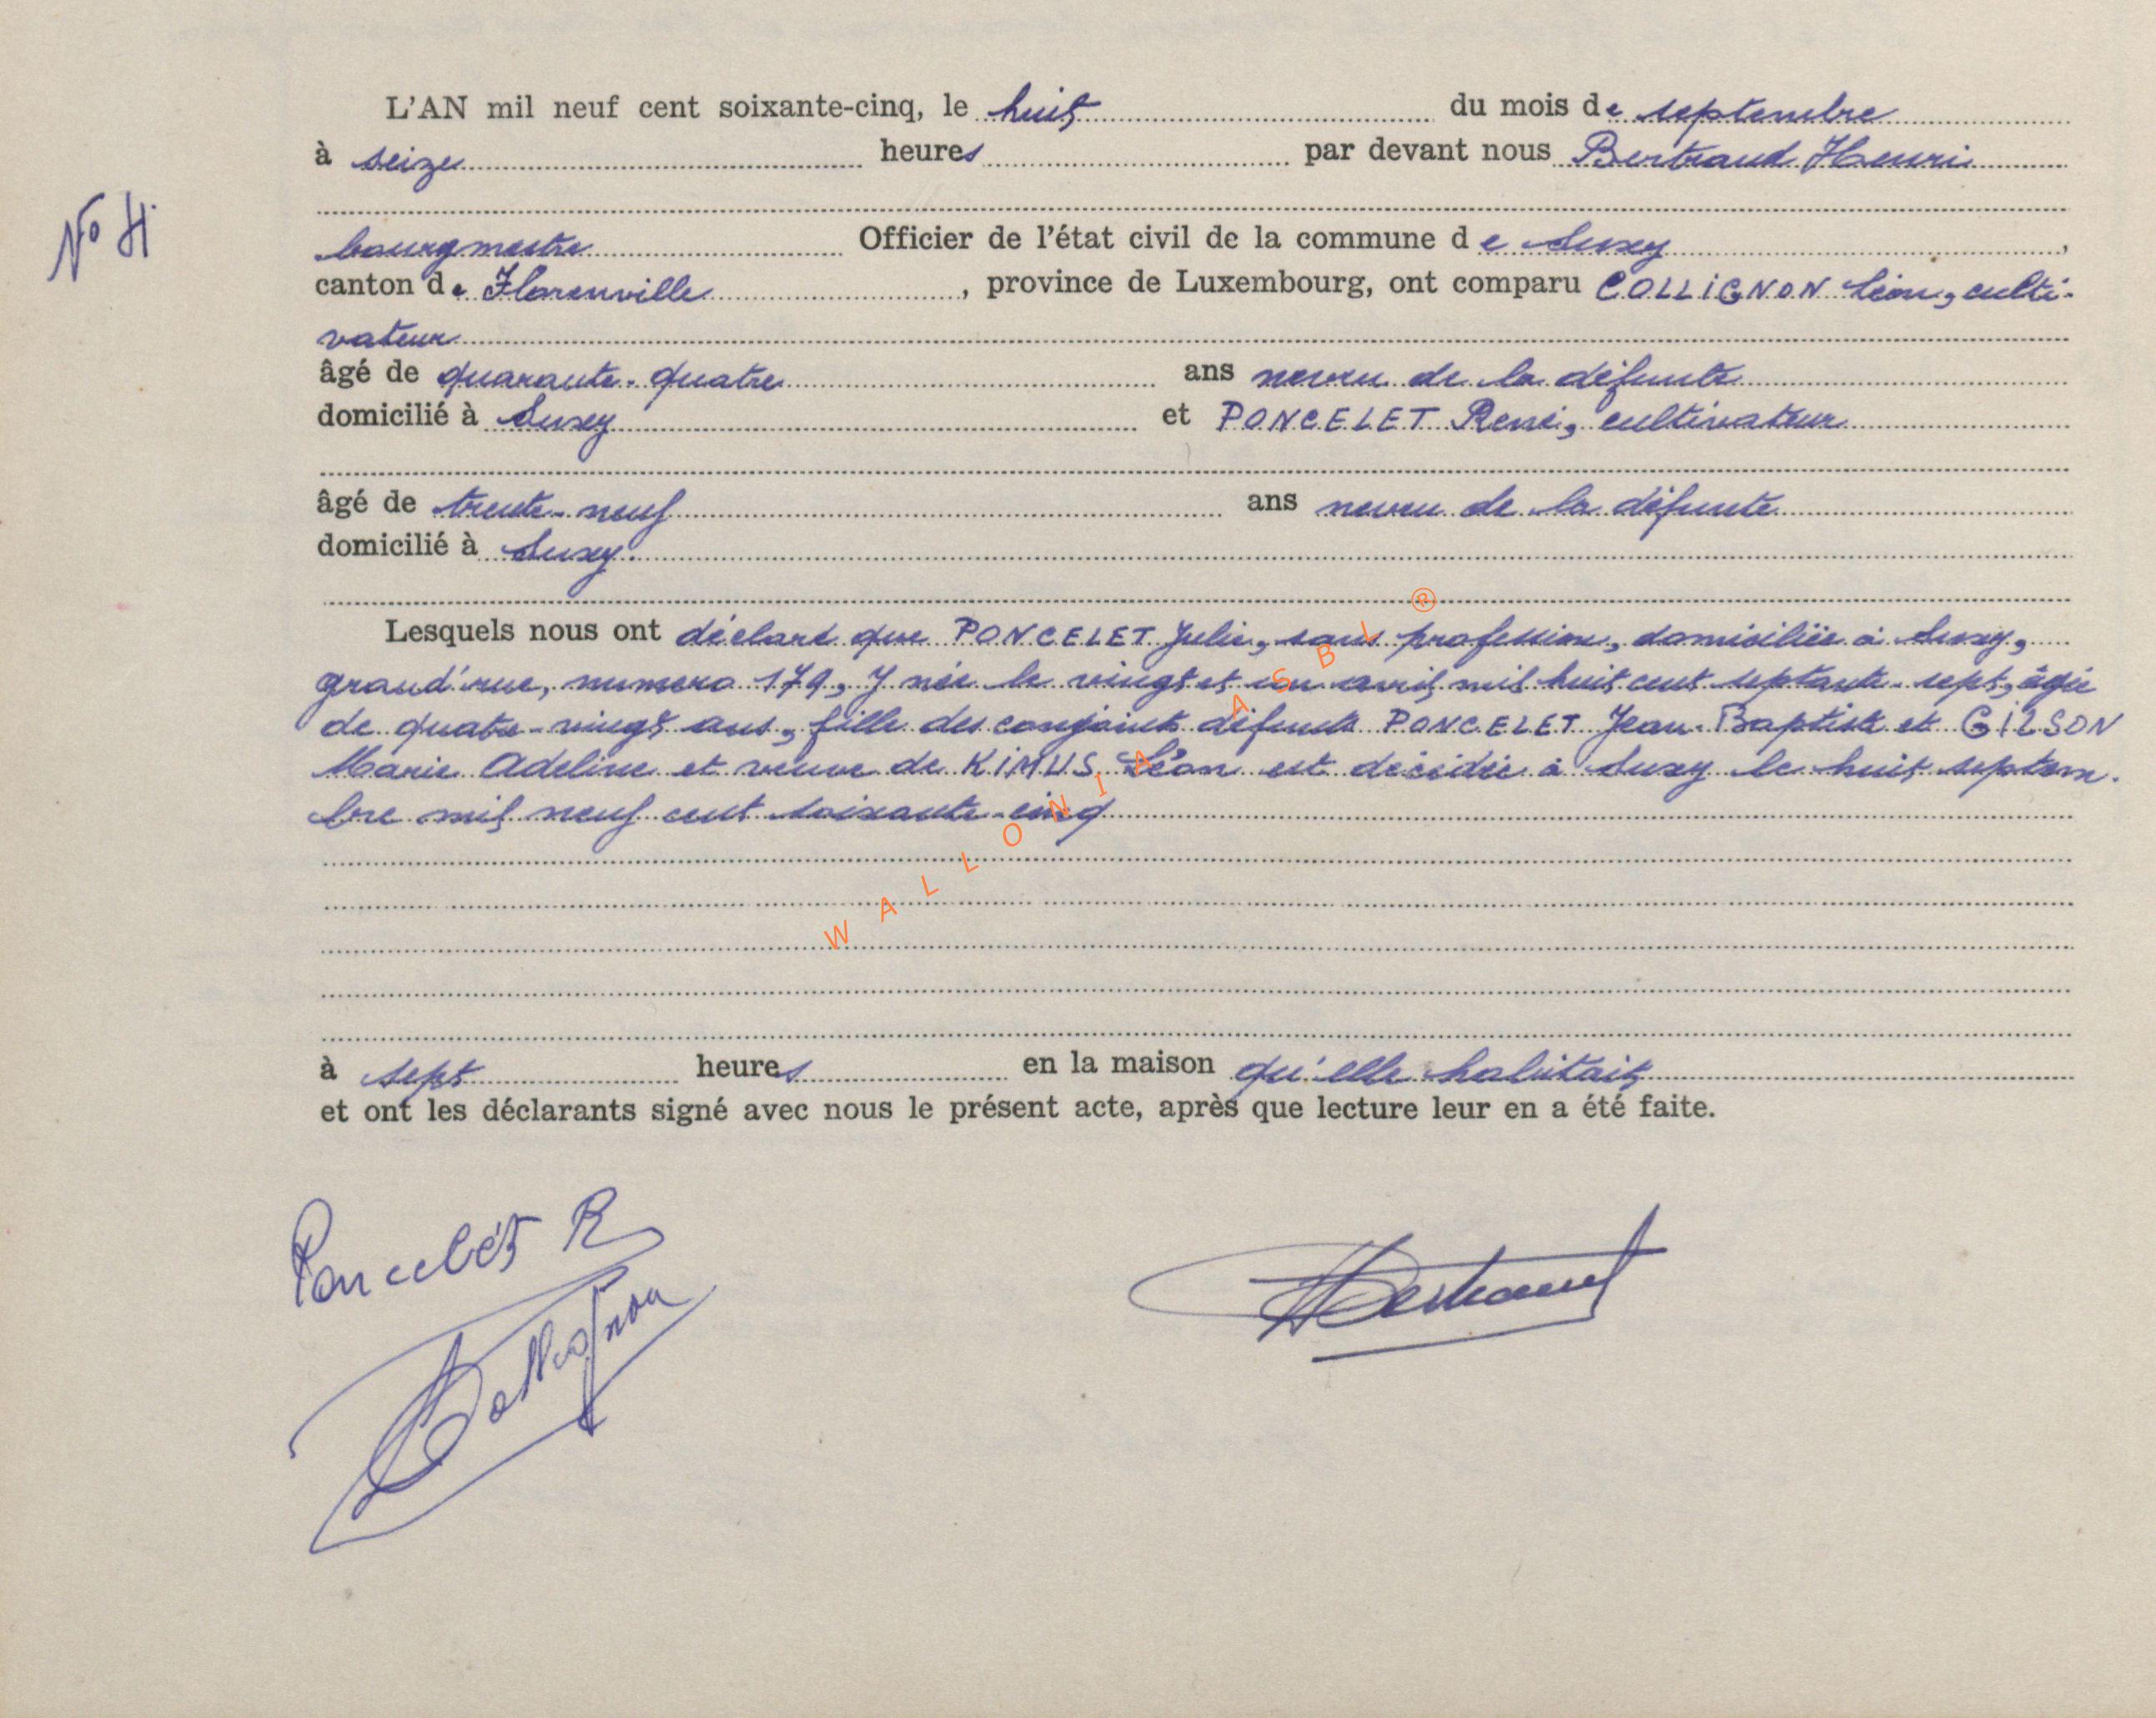 L'AN mil neuf cent soixante-cinq, le huit du mois de septembre
à seize heures par devant nous Bertrand Henri
No 4.
bourgmestre Officier de l'état civil de la commune de Suxy,
canton de Florenville, province de Luxembourg, ont comparu COLLIGNON Léon, culti-
vateur
âgé de quarante-quatre ans neveu de la défunte
domicilié à Suxy et PONCELET René, cultivateur
âgé de trente-neuf ans neveu de la défunte
domicilié à Suxy.
Lesquels nous ont déclaré que PONCELET Julie, sans profession, domiciliée à Suxy,
grand'rue, numero 179, y née le vingt et un avril mil huit cent septante-sept, âgée
de quatre-vingt ans, fille des conjoints défunts PONCELET Jean-Baptiste et GILSON
Marie Adeline et veuve de KIMUS Léon est décédée à Suxy le huit septem-
bre mil neuf cent soixante-cinq
WALLONIA ASBL ®
à sept heures en la maison qu'elle habitait
et ont les déclarants signé avec nous le présent acte, après que lecture leur en a été faite.
Poncelet R
HBertrand
Collignon